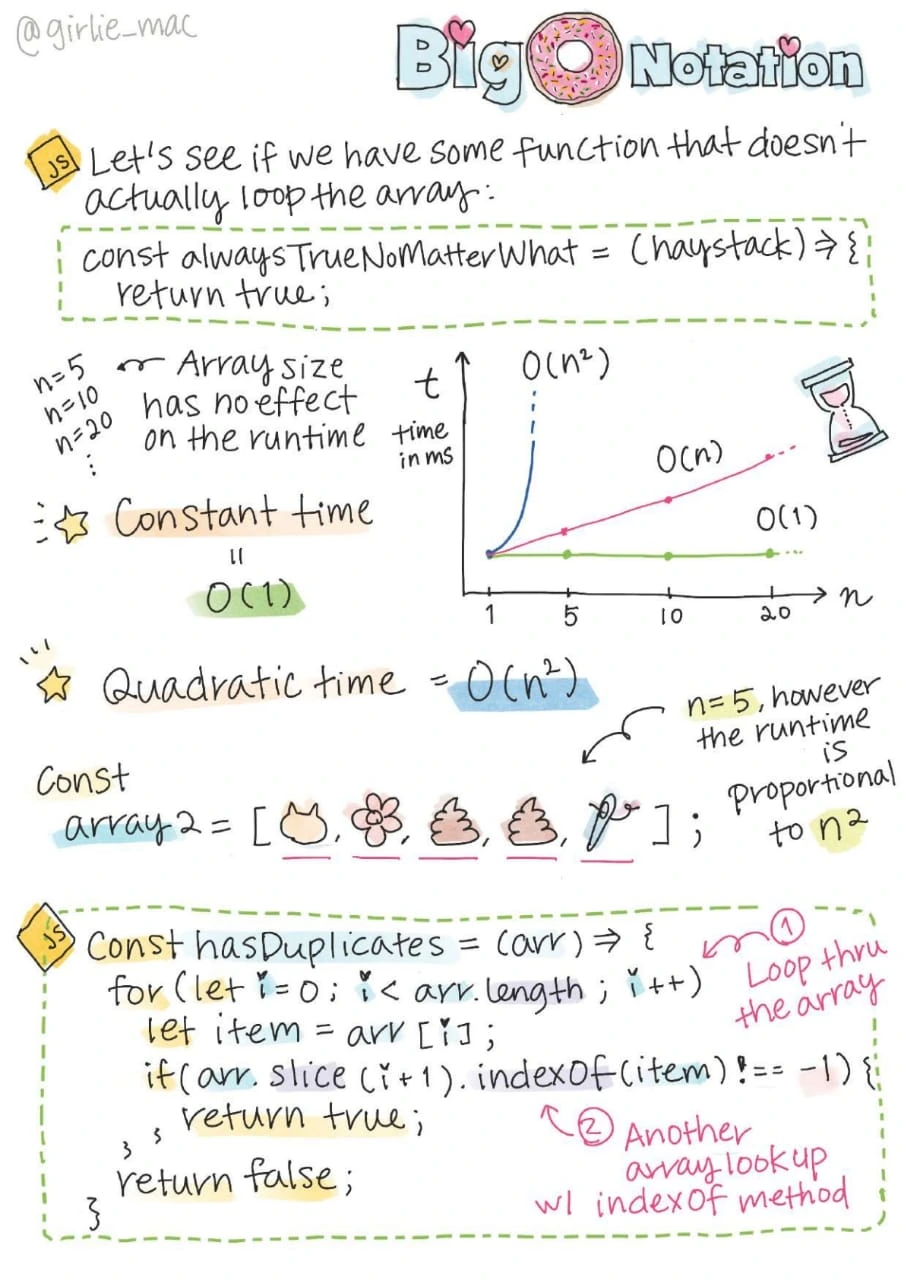 @girlie_mac
Big O Notation
JS
Let's see if we have some function that doesn't
actually loop the array:
const alwaysTrueNoMatterWhat = (haystack) => {
return true;
n=5
n=10
n=20
⋮
Array size
has no effect
on the runtime
Constant time
=
O(1)
t
time
in ms
O(n²)
O(n)
O(1)
1 5 10 20 n
Quadratic time = O(n²)
n=5, however
the runtime
is
proportional
to n²
Const
array2 = [ , , , , ];
JS
Const hasDuplicates = (arr) => {
for (let i=0; i< arr.length; i++)
let item = arr [i];
if(arr.slice(i+1).indexOf(item) !== -1) {
return true;
} }
return false;
}
① Loop thru
the array
② Another
array lookup
w/ indexOf method